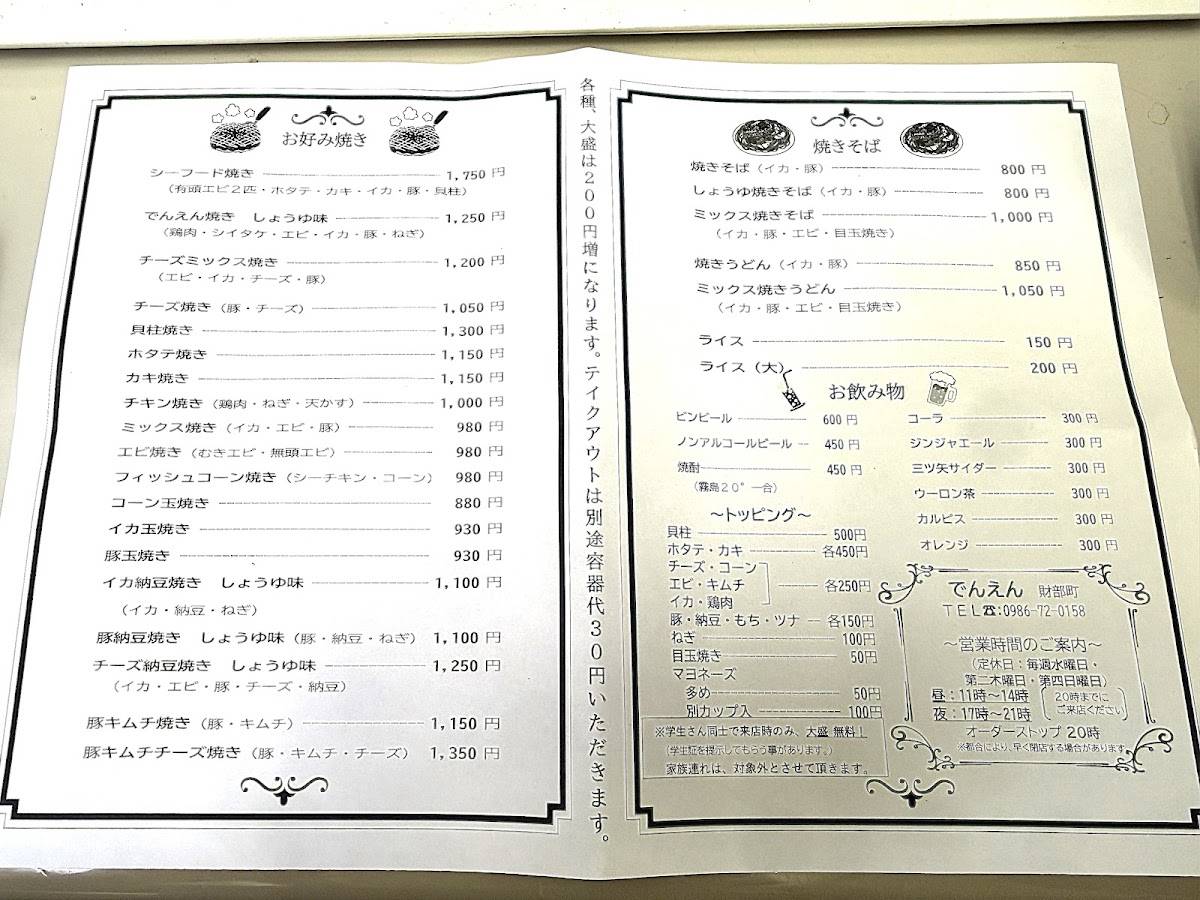 お好み焼き
シーフード焼き 1,750 円
(有頭エビ2匹・ホタテ・カキ・イカ・豚・貝柱)
でんえん焼き しょうゆ味 1,250 円
(鶏肉・シイタケ・エビ・イカ・豚・ねぎ)
チーズミックス焼き 1,200 円
(エビ・イカ・チーズ・豚)
チーズ焼き (豚・チーズ) 1,050 円
貝柱焼き 1,300 円
ホタテ焼き 1,150 円
カキ焼き 1,150 円
チキン焼き (鶏肉・ねぎ・天かす) 1,000 円
ミックス焼き (イカ・エビ・豚) 980 円
エビ焼き (むきエビ・無頭エビ) 980 円
フィッシュコーン焼き (シーチキン・コーン) 980 円
コーン玉焼き 880 円
イカ玉焼き 930 円
豚玉焼き 930 円
イカ納豆焼き しょうゆ味 1,100 円
(イカ・納豆・ねぎ)
豚納豆焼き しょうゆ味 (豚・納豆・ねぎ) 1,100 円
チーズ納豆焼き しょうゆ味 1,250 円
(イカ・エビ・豚・チーズ・納豆)
豚キムチ焼き (豚・キムチ) 1,150 円
豚キムチチーズ焼き (豚・キムチ・チーズ) 1,350 円
各種、大盛は200円増になります。テイクアウトは別途容器代30円いただきます。
焼きそば
焼きそば (イカ・豚) 800 円
しょうゆ焼きそば (イカ・豚) 800 円
ミックス焼きそば 1,000 円
(イカ・豚・エビ・目玉焼き)
焼きうどん (イカ・豚) 850 円
ミックス焼きうどん 1,050 円
(イカ・豚・エビ・目玉焼き)
ライス 150 円
ライス (大) 200 円
お飲み物
ビンビール 600 円
ノンアルコールビール 450 円
焼酎 450 円
(霧島20°一合)
コーラ 300 円
ジンジャエール 300 円
三ツ矢サイダー 300 円
ウーロン茶 300 円
カルピス 300 円
オレンジ 300 円
～トッピング～
貝柱 500円
ホタテ・カキ 各450円
チーズ・コーン
エビ・キムチ 各250円
イカ・鶏肉
豚・納豆・もち・ツナ 各150円
ねぎ 100円
目玉焼き 50円
マヨネーズ
多め 50円
別カップ入 100円
※学生さん同士で来店時のみ、大盛 無料!
(学生証を提示してもらう事があります。)
家族連れは、対象外とさせて頂きます。
でんえん 財部町
TEL☎:0986-72-0158
～営業時間のご案内～
(定休日：毎週水曜日・
第二木曜日・第四日曜日)
昼：11時～14時
夜：17時～21時
(20時までに
ご来店ください)
オーダーストップ 20時
※都合により、早く閉店する場合があります